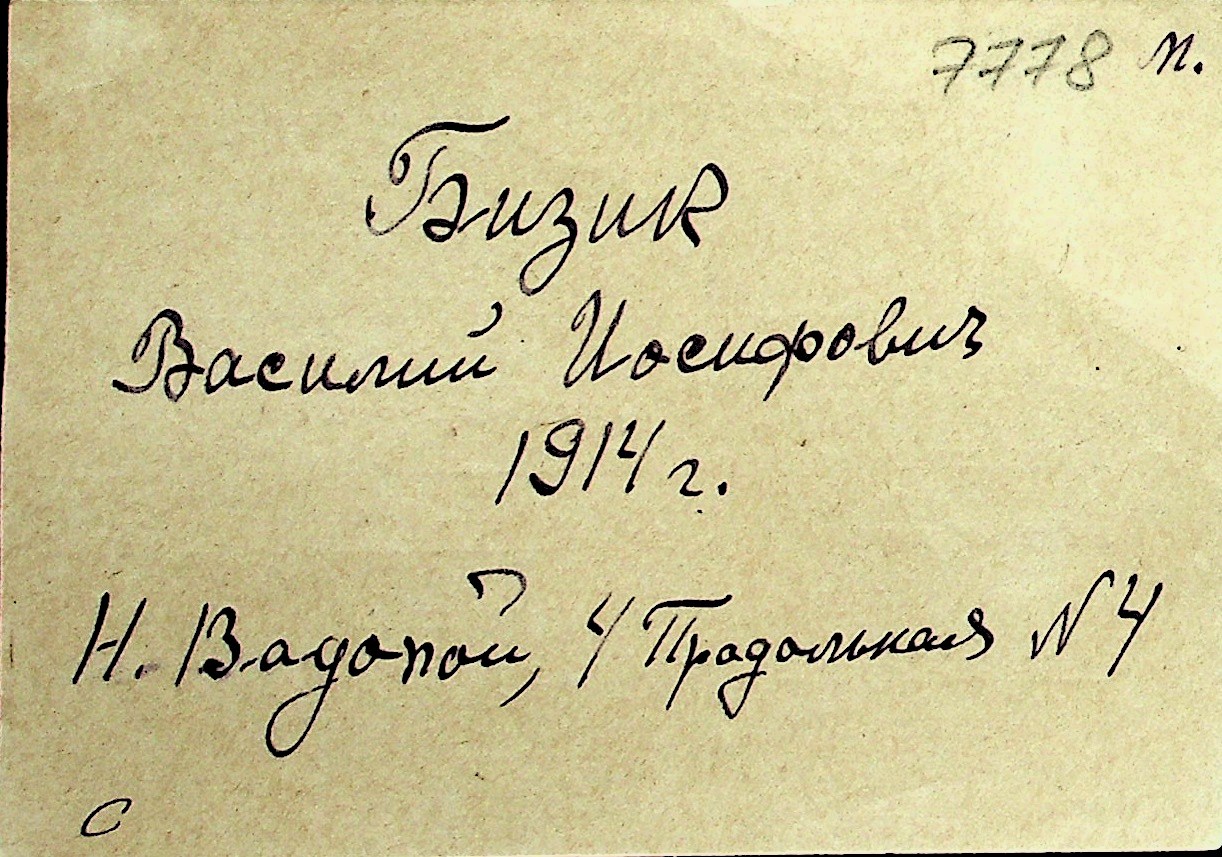 7778 п.
Бизик
Василий Иосифович
1914 г.
Н. Водопой, 4 Продольная N 4
с